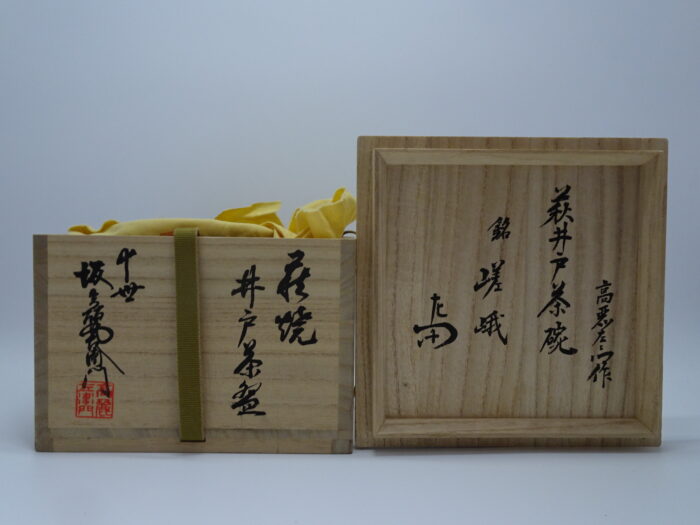 萩焼
井戸茶盌
十世
坂高麗左衛門
高麗左衛門
高麗左衛門作
萩井戸茶碗
銘
嵯峨